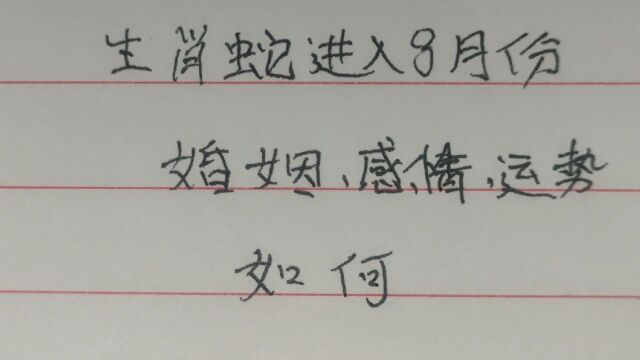 生肖蛇进入8月份
婚姻、感情、运势
如何